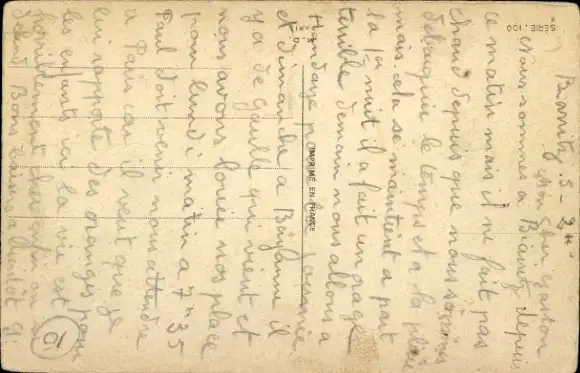 Biarritz. 5 -
Mon cher Gaston
nous sommes à Biarritz depuis
ce matin mais il ne fait pas
chaud depuis que nous sommes
débarquée le temps et à la pluie
mais cela se maintient a part
la 1re nuit il a fait un orage
terrible demain nous allons a
Hendaye pour la journée
et dimanche a Bayonne il
y a de Gaulle qui vient et
nous avons louée nos place
pour lundi matin a 7h35
Paul doit venir nous attendre
a Paris car il veut que je
lui rapporte des oranges pour
les enfants ici la vie est
horriblement cher enfin on
Bons baisers a bientôt
SÉRIE. 100
PARIS
IMPRIMÉ EN FRANCE